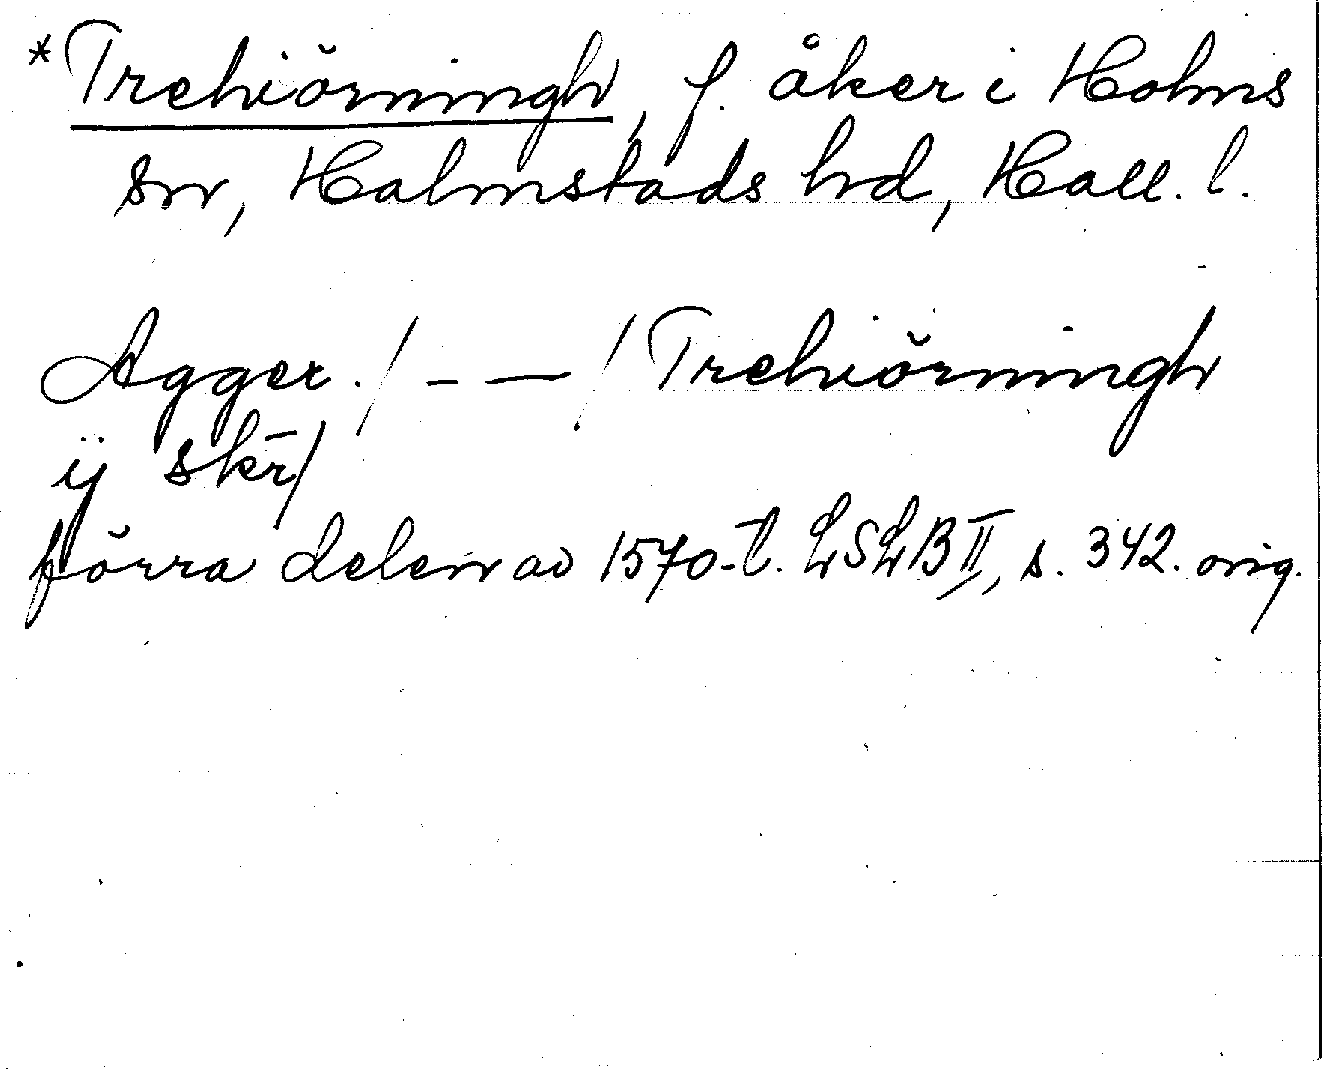 *Trehiörningh, f. åker i Holms
sn, Halmstads hrd, Hall. l.
Agger. / - — / Trehiörningh
ÿ skr̄/
förra delen av 1570-t. LSLB II, s. 342. orig.